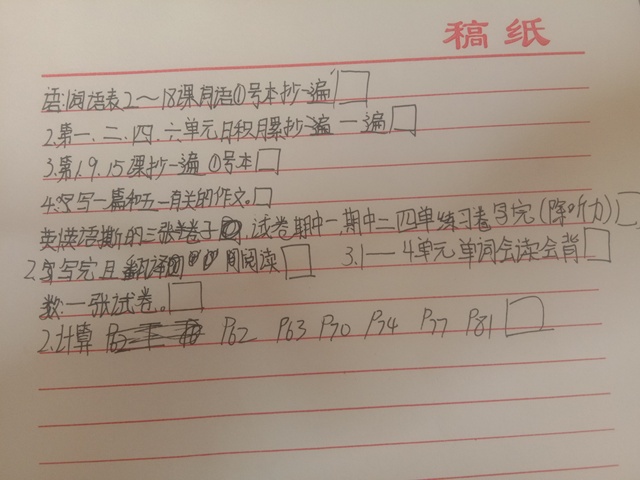 稿纸
语:1.词语表2~18课用语①号本抄一遍
2.第一、二、四、六单元日积月累抄一遍 一遍
3.第1.9.15课抄一遍 ①号本
4.写一篇和五一有关的作文。
英:英语斯的三张卷子,试卷期中一.期中二四单练习卷写完(除听力)
2.写完且翻译 阅读 3.1—4单元单词会读会背
数:一张试卷。
2.计算 P62 P63 P70 P74 P77 P81